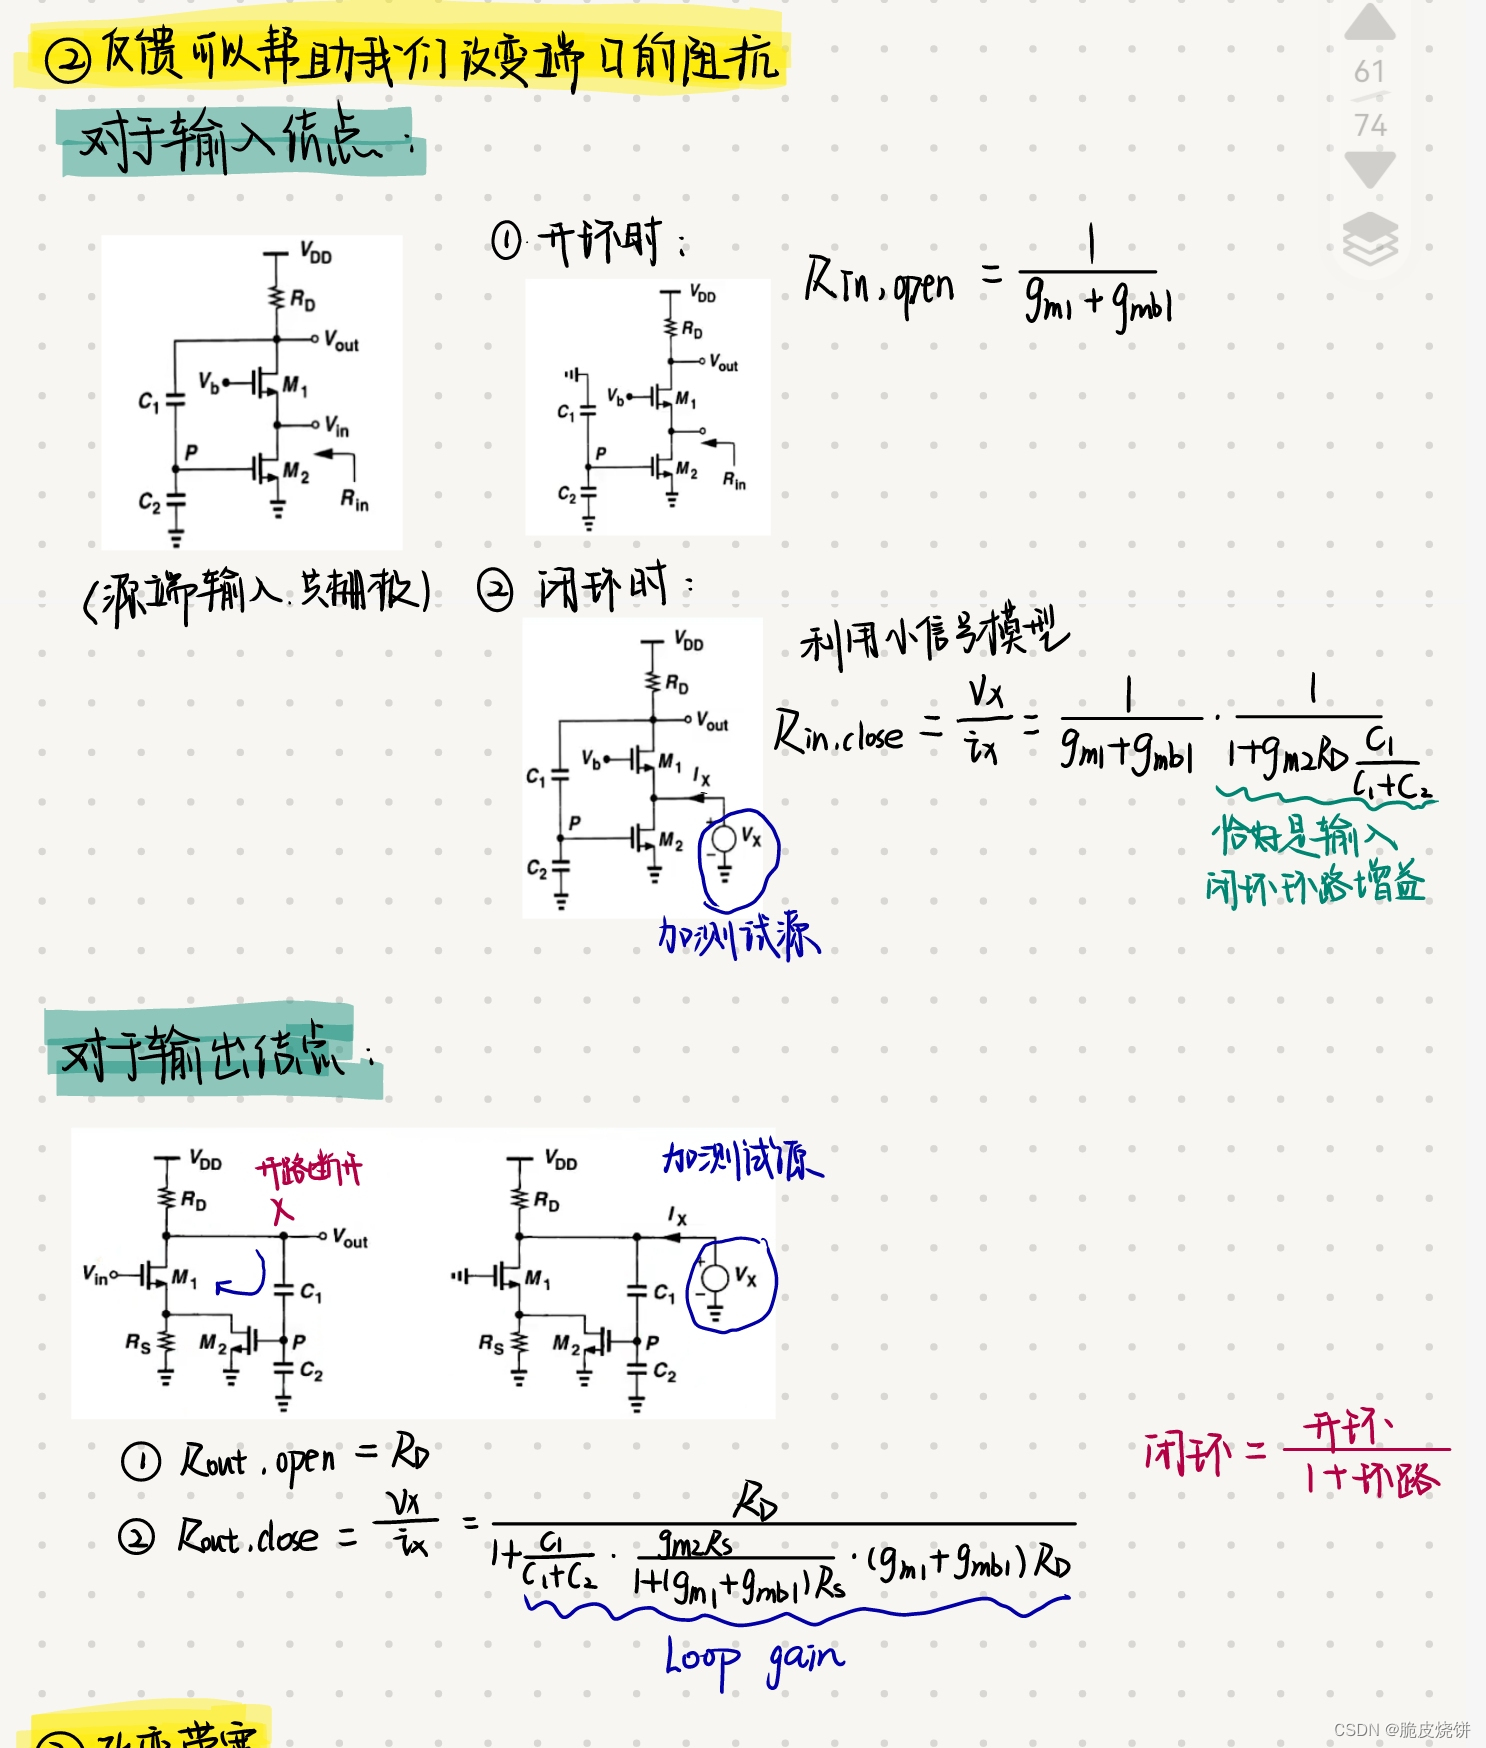 ②反馈可以帮助我们改变端口的阻抗
对于输入结点：
61
74
V_DD
R_D
V_out
V_b
M_1
C_1
V_in
P
M_2
C_2
R_in
(源端输入.共栅极)
① 开环时：
V_DD
R_D
V_out
V_b
M_1
C_1
P
M_2
C_2
R_in
R_in,open = 1/(g_m1 + g_mb1)
② 闭环时：
V_DD
R_D
V_out
V_b
M_1
C_1
I_X
P
M_2
+
V_X
−
C_2
加测试源
利用小信号模型
R_in.close = Vx/ix = 1/(g_m1+g_mb1) · 1/(1+g_m2R_D C_1/(C_1+C_2))
恰好是输入
闭环环路增益
对于输出结点：
V_DD
开路断开
X
R_D
V_out
V_in
M_1
C_1
R_S
M_2
P
C_2
加测试源
V_DD
R_D
I_X
M_1
C_1
+
V_X
−
R_S
M_2
P
C_2
① R_out.open = R_D
② R_out.close = Vx/ix = R_D/(1+C_1/(C_1+C_2) · g_m2R_S/(1+(g_m1+g_mb1)R_S) · (g_m1+g_mb1)R_D)
Loop gain
闭环 = 开环/(1+环路)
CSDN @脆皮烧饼